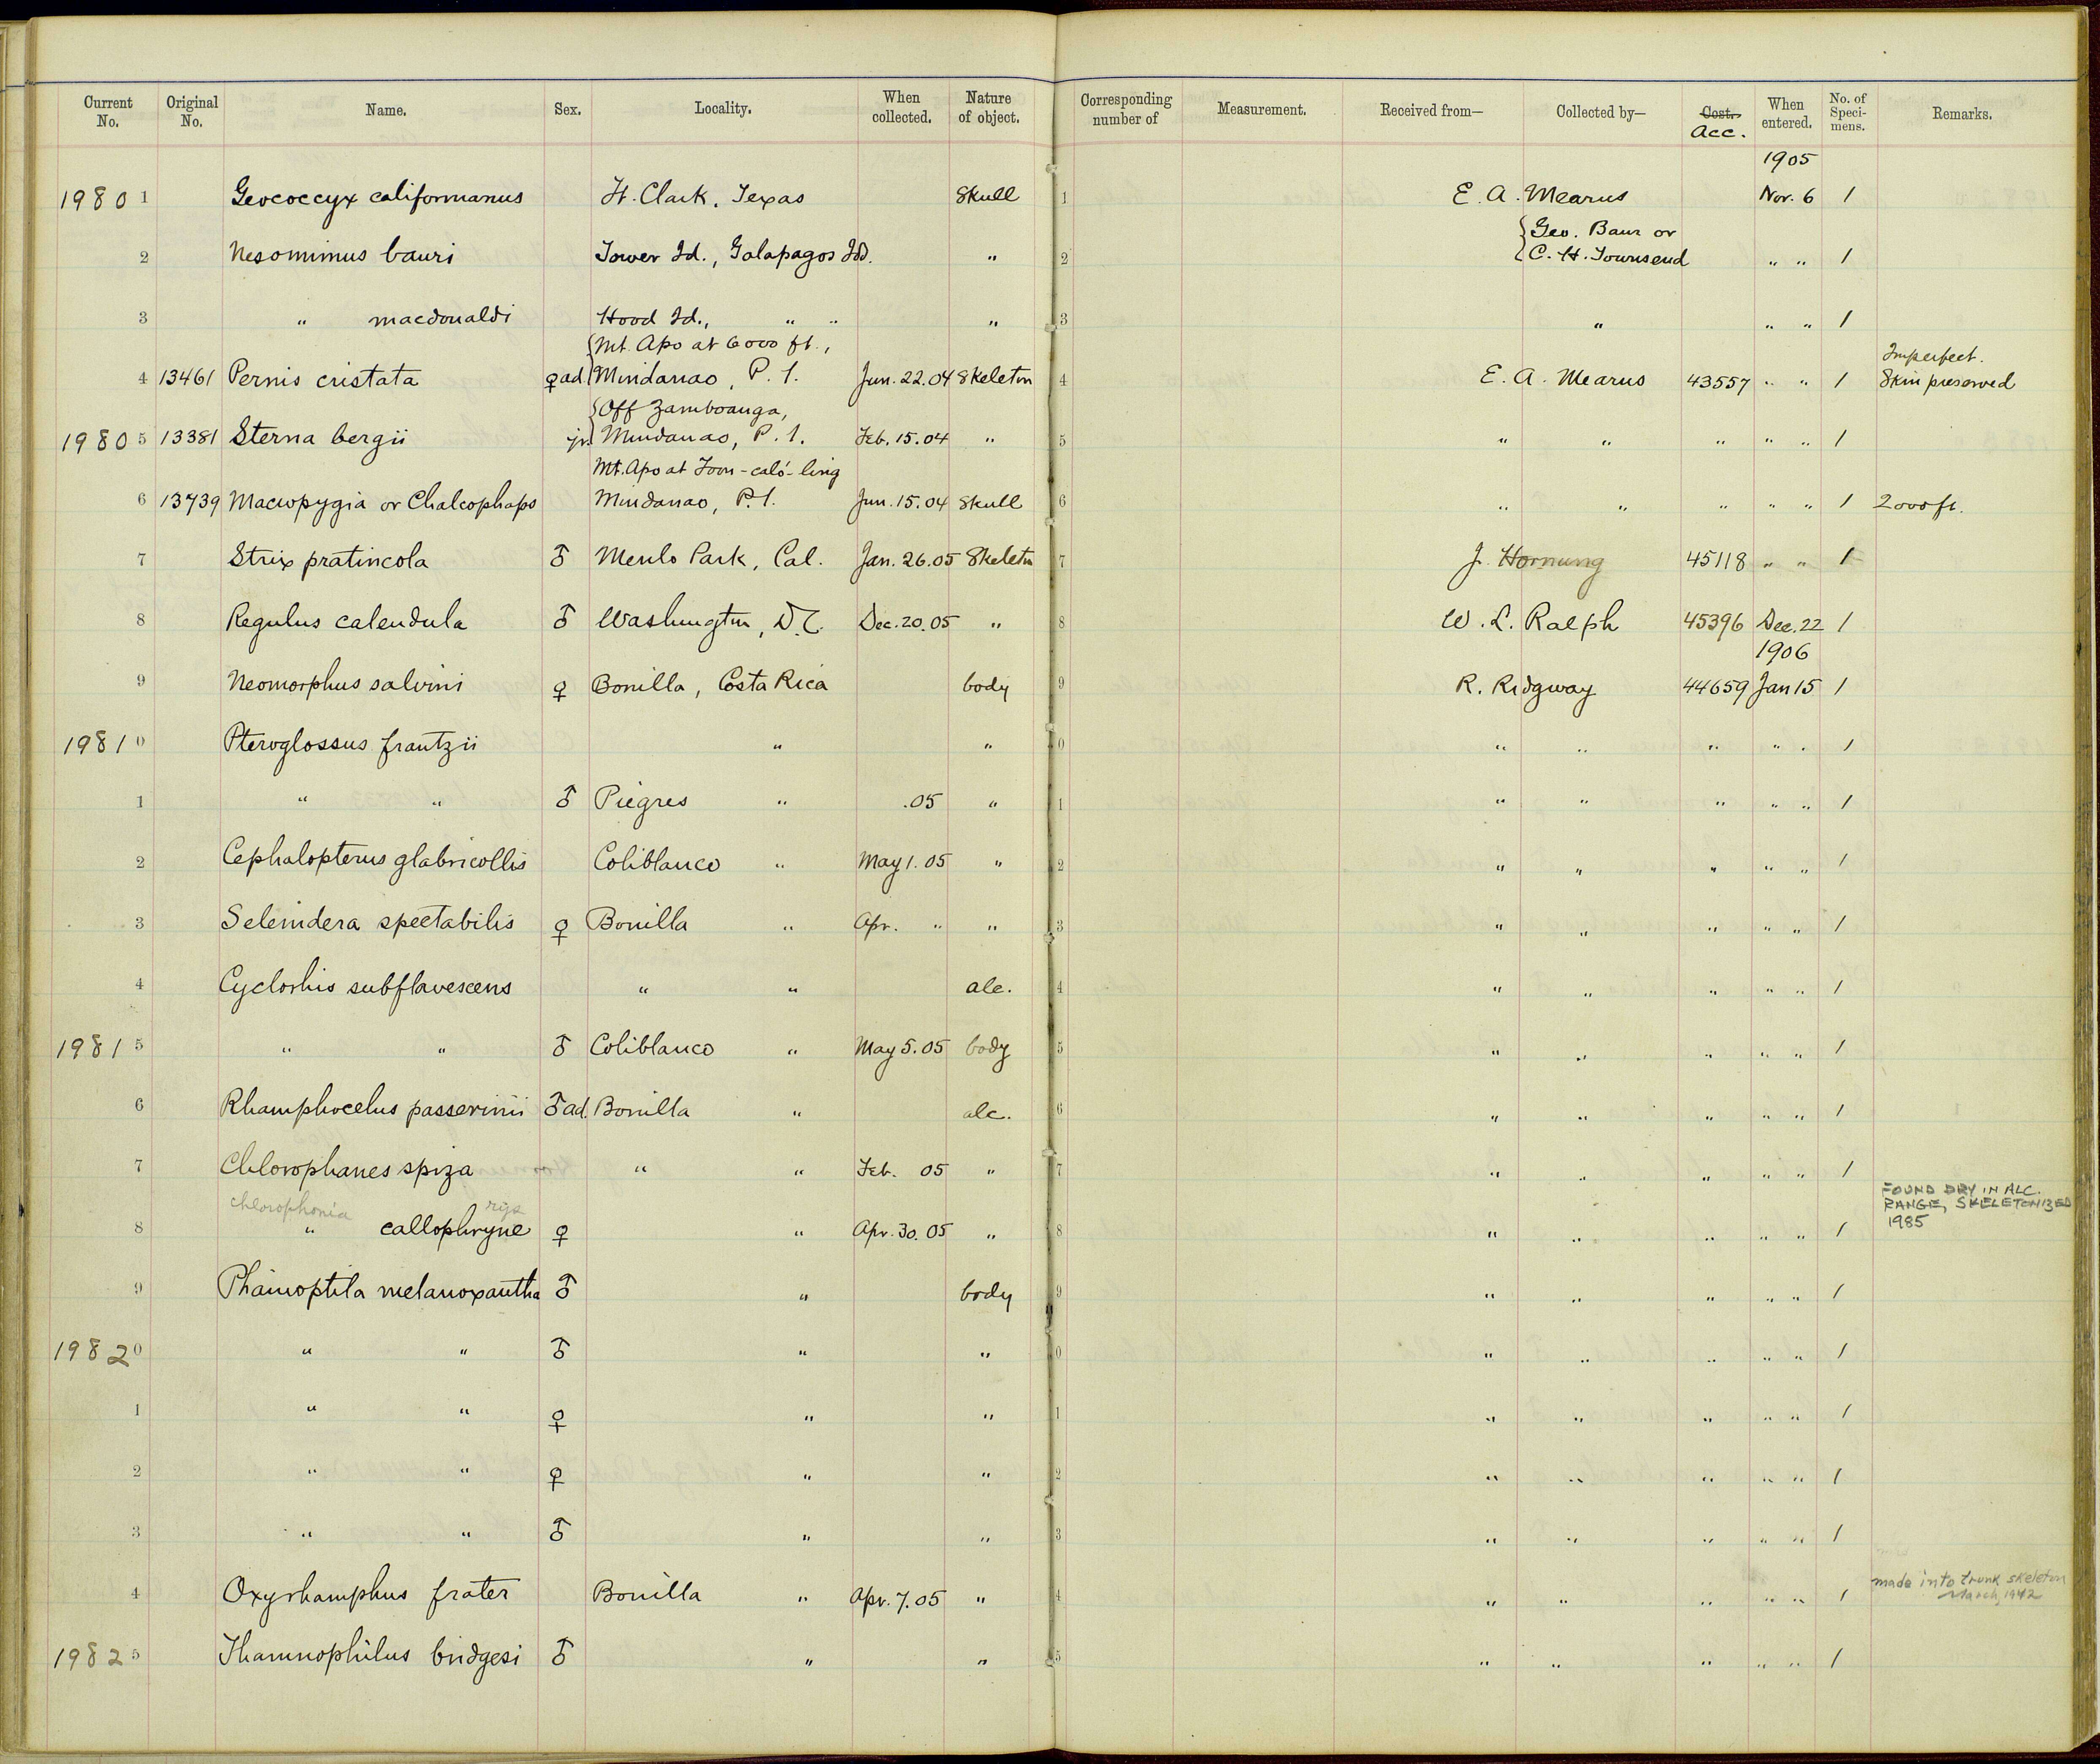 Current No. Original No. Name. Sex. Locality. When collected. Nature of object. Corresponding number of Measurement. Received from— Collected by— Cost. Acc. When entered. No. of Speci-mens. Remarks.
1905
19801 Geococcyx californianus Ft. Clark, Texas Skull 1 E. A. Mearns Nov. 6 1
{Geo. Baur or
2 Nesomimus bauri Tower Id., Galapagos Ids. " 2 C. H. Townsend " " 1
3 " macdonaldi Hood Id., " " " 3 " " " 1
{Mt. Apo at 6000 ft., Imperfect.
4 13461 Pernis cristata ♀ad. Mindanao, P.I. Jun. 22.04 Skeleton 4 E. A. Mearns 43557 " " 1 Skin preserved
{Off Zamboanga,
19805 13381 Sterna bergii jr. Mindanao, P.I. Feb. 15.04 " 5 " " " " " 1
Mt. Apo at Toon-caló-ling
6 13739 Macropygia or Chalcophaps Mindanao, P.I. Jun. 15.04 Skull 6 " " " " " 1 2000 ft.
7 Strix pratincola ♂ Menlo Park, Cal. Jan. 26.05 Skeleton 7 J. Hornung 45118 " " 1
8 Regulus calendula ♂ Washington, D.C. Dec. 20.05 " 8 W. L. Ralph 45396 Dec. 22 1
1906
9 Neomorphus salvini ♀ Bonilla, Costa Rica body 9 R. Ridgway 44659 Jan 15 1
19810 Pteroglossus frantzii " " 0 " " " " " 1
1 " " ♂ Piegres " .05 " 1 " " " " " 1
2 Cephalopterus glabricollis Coliblanco " May 1. 05 " 2 " " " " " 1
3 Selenidera spectabilis ♀ Bonilla " Apr. " " 3 " " " " " 1
4 Cyclorhis subflavescens " " alc. 4 " " " " " 1
19815 " " ♂ Coliblanco " May 5. 05 body 5 " " " " " 1
6 Rhamphocelus passerinii ♂ad. Bonilla " alc. 6 " " " " " 1
7 Chlorophanes spiza " " Feb. 05 " 7 " " " " " 1
FOUND DRY IN ALC.
chlorophonia rys RANGE, SKELETONIZED
8 " callophryne ♀ " Apr. 30. 05 " 8 " " " " " 1 1985
9 Phainoptila melanoxantha ♂ " body 9 " " " " " 1
19820 " " ♂ " " 0 " " " " " 1
1 " " ♀ " " 1 " " " " " 1
2 " " ♀ " " 2 " " " " " 1
3 " " ♂ " " 3 " " " " " 1
made into trunk skeleton
4 Oxyrhamphus frater Bonilla " Apr. 7. 05 " 4 " " " " " 1 March, 1942
19825 Thamnophilus bridgesi ♂ " " 5 " " " " " 1